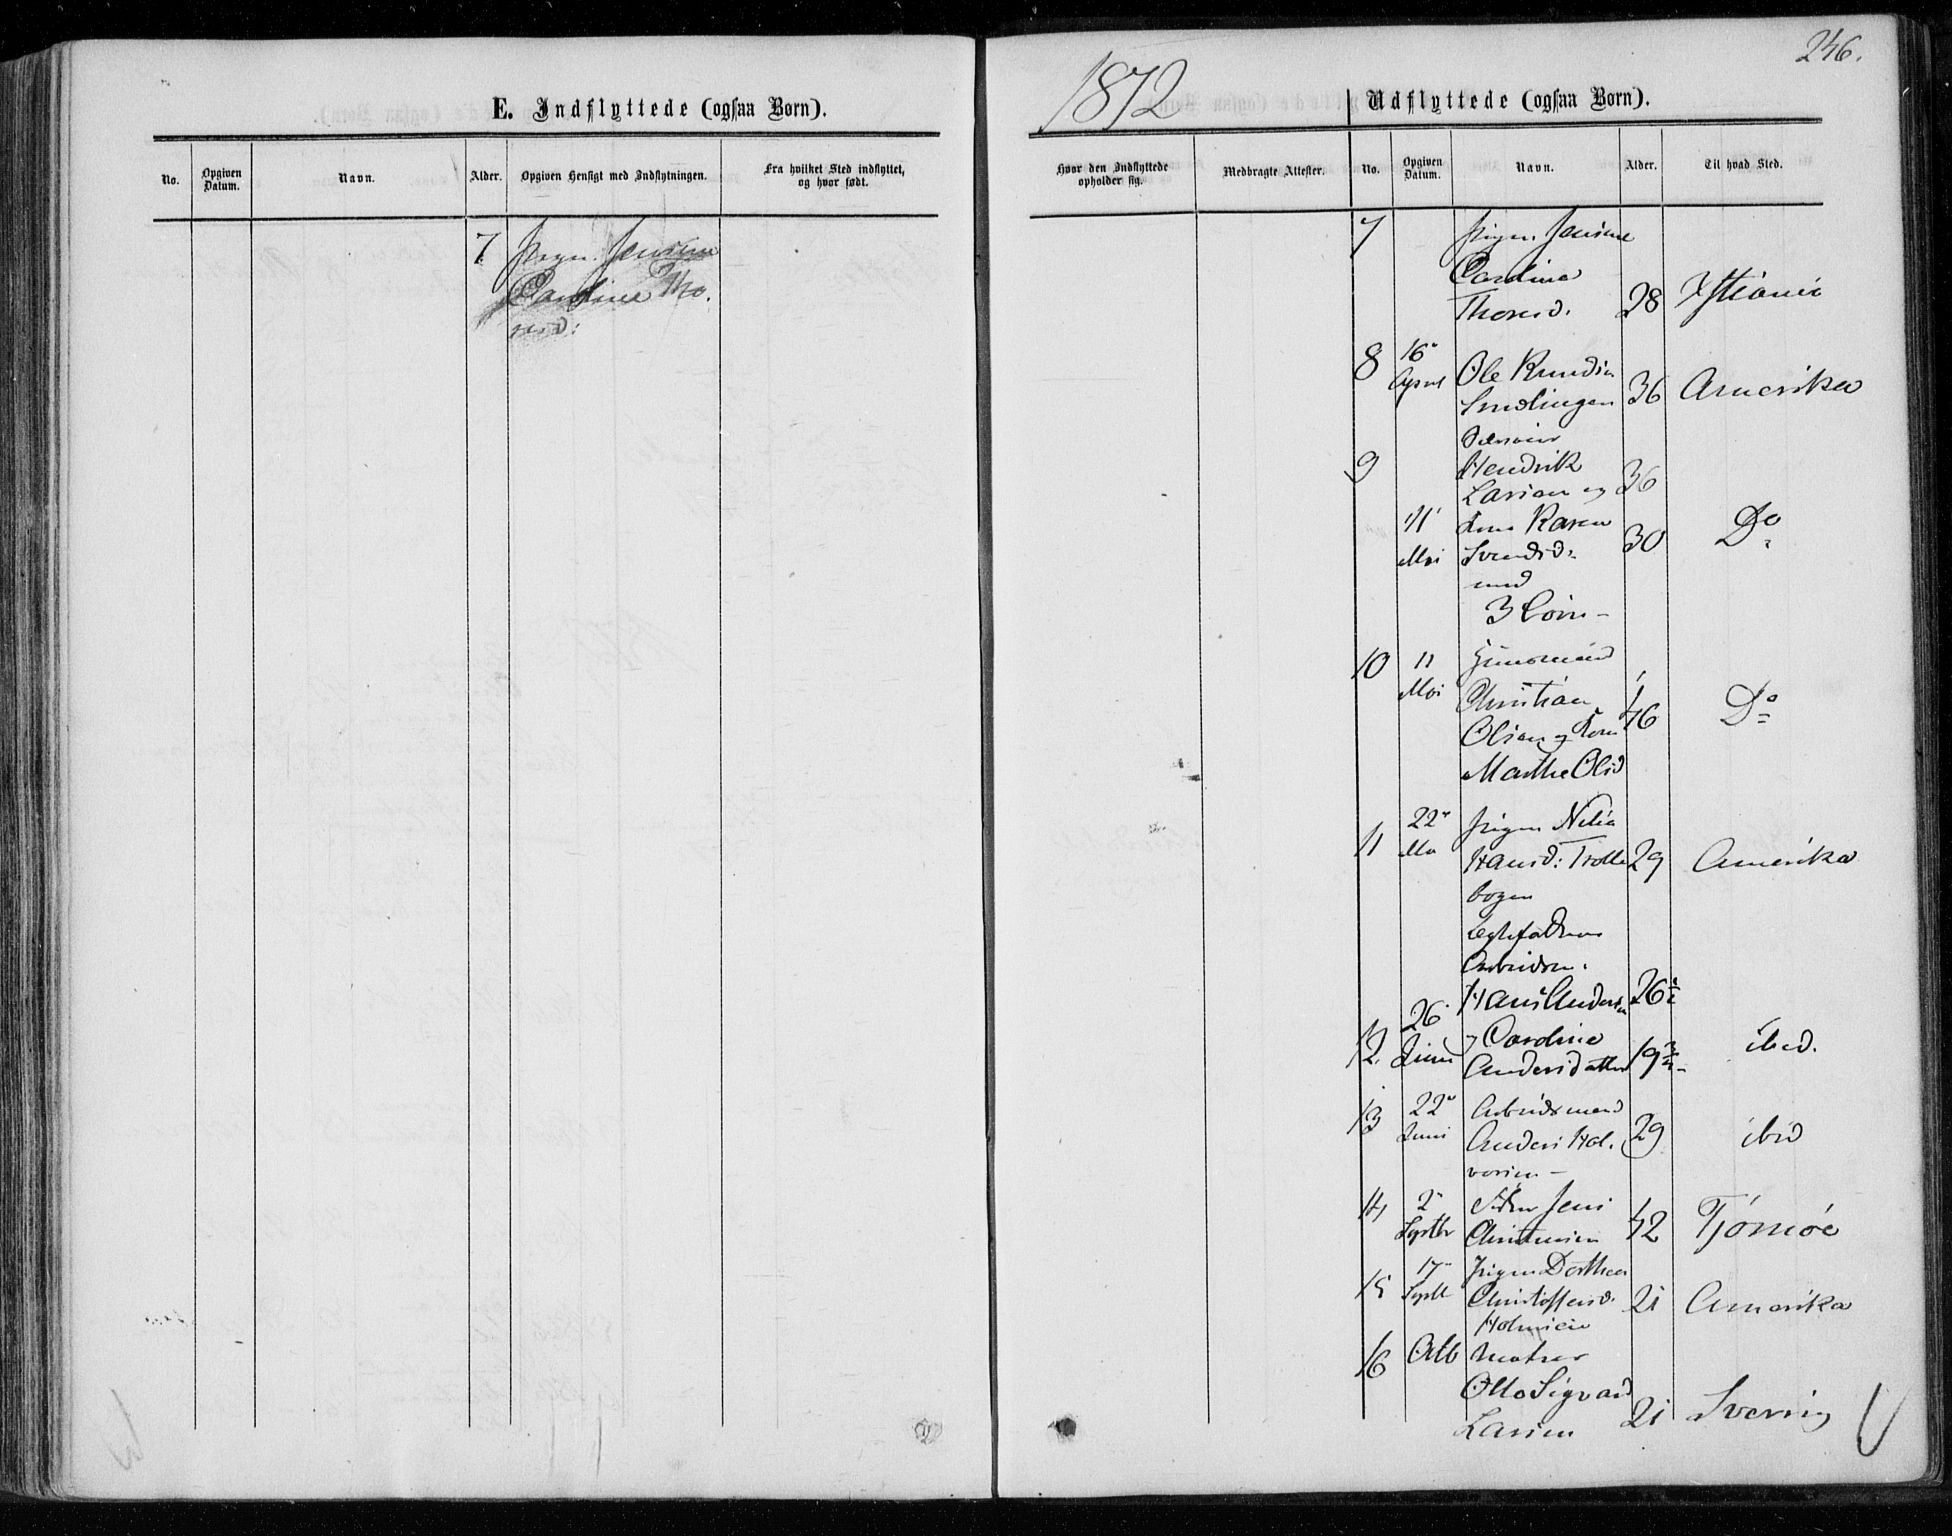 246.
1872
E. Indflyttede (ogsaa Børn).
No.
Opgiven Datum.
Navn.
Alder.
Opgiven Hensigt med Indflytningen.
Fra hvilket Sted indflyttet, og hvor født.
7 Pigen Jensine
Caroline Tho-
resd:
Udflyttede (ogsaa Børn).
Hvor den Indflyttede opholder sig.
Medbragte Attester.
No.
Opgiven Datum.
Navn.
Alder.
Til hvad Sted.
7 Pigen Jensine
Caroline
Thoresd. 28 Xstiania
8 16 April Ole Knudsen
36 Amerika
9 Hendrik
Larsen og 36
11 Mai Kone Karen
Svendsd: 30 Do
med
3 Børn -
10 11 Mai Huusmand
Christian
Olsen og Kone 46 Do
Marthe Olsd
11 22 Mai Pigen
Hansd: Trolle 29 Amerika
bogen
Hans Anders 26 1/2
12. 26 Juni og Caroline ibid.
Andersdatter 19 3/4 -
13 22 Juni Arbeidsmand
Anders Hal- 29 ibid
vorsen -
14 2 Septbr Jens
Christensen 42 Tjömöe
15 17 Septb Pigen Dorthea
Christoffersd. 21 Amerika
16 Octb Matros
Otto Sigvard
Larsen 21 Sverrig